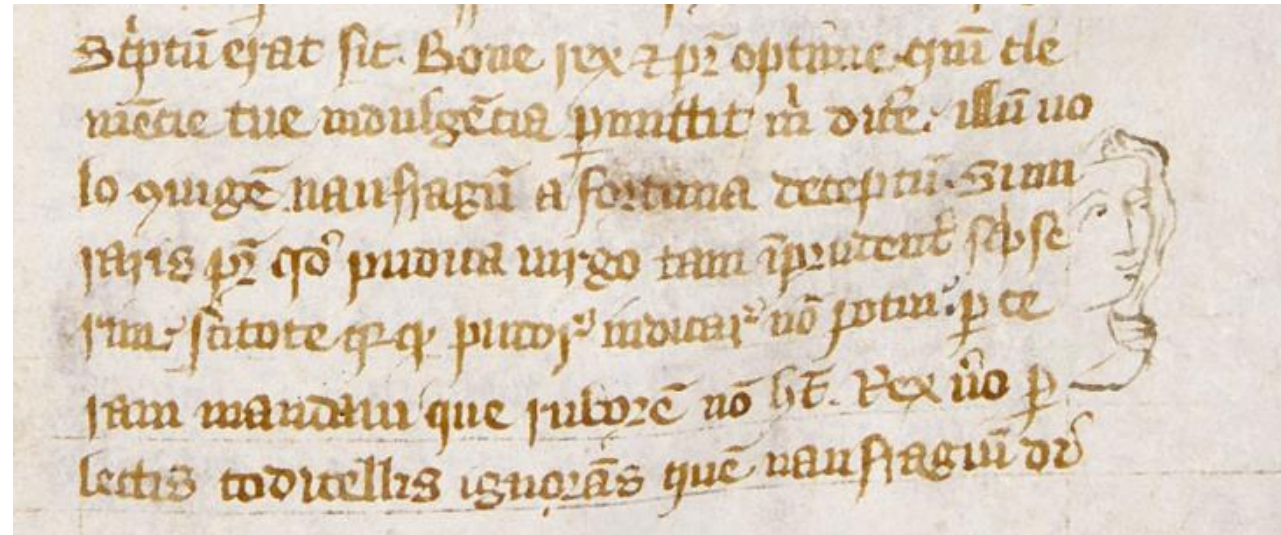 Sc'ptū erat sic. Bone rex ⁊ pr̄ optime qm̄ cle
mēcie tue indulgēcia ꝑmittit m̍ dice͛. illū uo
lo ꝯiugē naufragū a fortuna deceptū. Si mi
raris pr̄ qd̓ pudica uirgo tam īprudent̄ sc̍pse
rim. scitote qꝛ ꝙ pudor͛ indicar͛ nō potui. ꝑ ce
ram mandaui que ruborē nō ht̄. Rex ů̓o ꝑ
lectis codicellis ignorās quē naufragiū dr̓